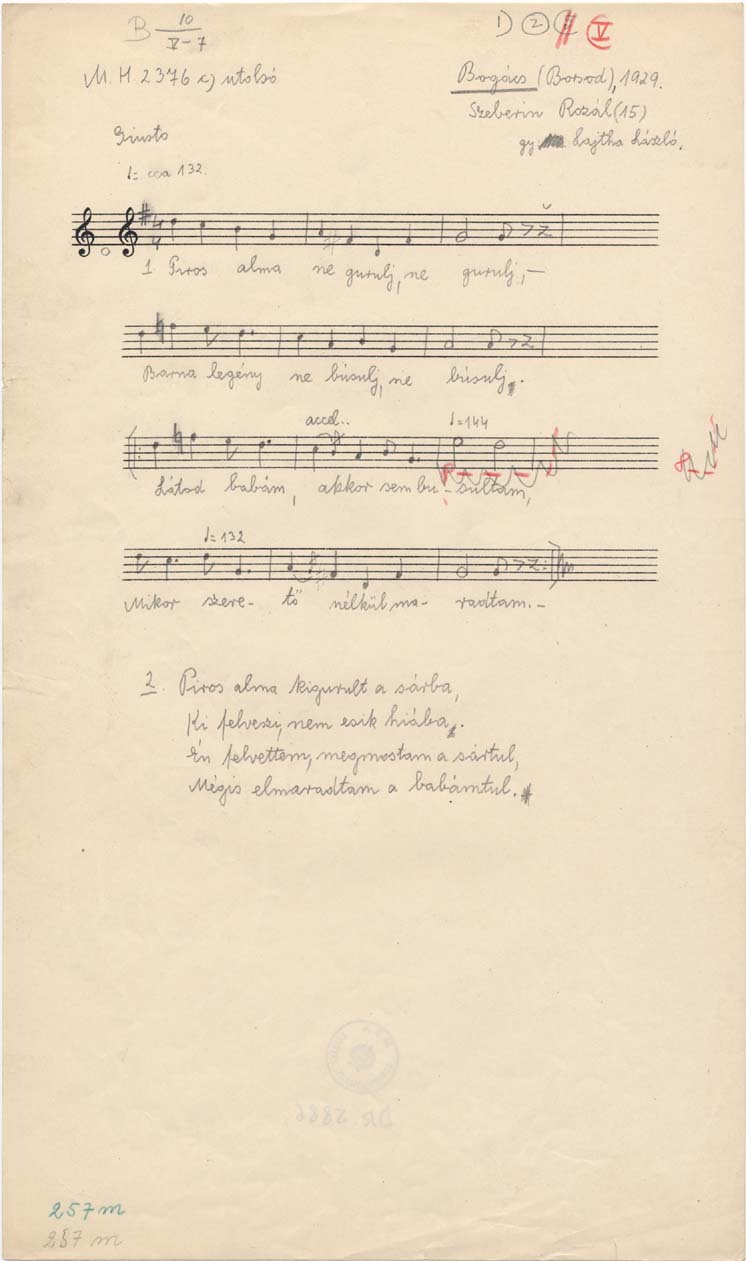 B 10/V-7
1) 2 V
M. H. 2376 c) utolsó
Bogács (Borsod), 1929.
Szeberin Rozál (15)
gy Lajtha László.
Giusto
♩= cca 132.
1 Piros alma ne gurulj, ne gurulj, —
Barna legény ne búsulj, ne búsulj.
accel..
♩=144
Látod babám, akkor sem bu-sultam,
♩=132
Mikor szere- tő nélkül ma- radtam. -
2. Piros alma kigurult a sárba,
Ki felveszi, nem esik hiába.
Én felvettem, megmostam a sártul,
Mégis elmaradtam a babámtul.
257 m
257 m